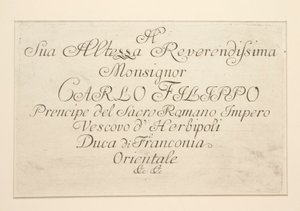 A
Sua Altezza Reverendissima
Monsignor
CARLO FILIPPO
Prencipe del Sacro Romano Impero
Vescovo d' Herbipoli
Duca di Franconia
Orientale
&. &.